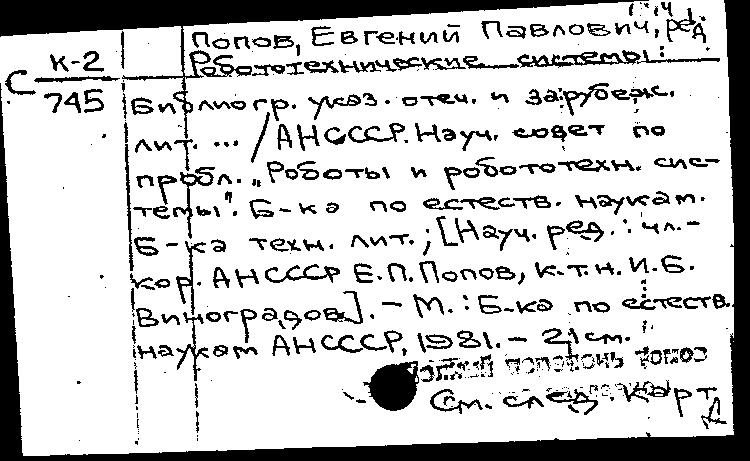 Попов, Евгений Павлович, ред.
К-2
Робототехнические системы:
С
745
Библиогр. указ. отеч. и зарубеж.
лит. ... / АНСССР. Науч. совет по
пробл. „Роботы и робототехн. сис-
темы". Б-ка по естеств. наукам.
Б-ка техн. лит.; [Науч. ред.: чл.-
кор. АНСССР Е.П. Попов, к.т.н. И.Б.
Виноградов]. - М. : Б-ка по естеств.
наукам АНСССР, 1981. - 21 см.
См. след. карт.